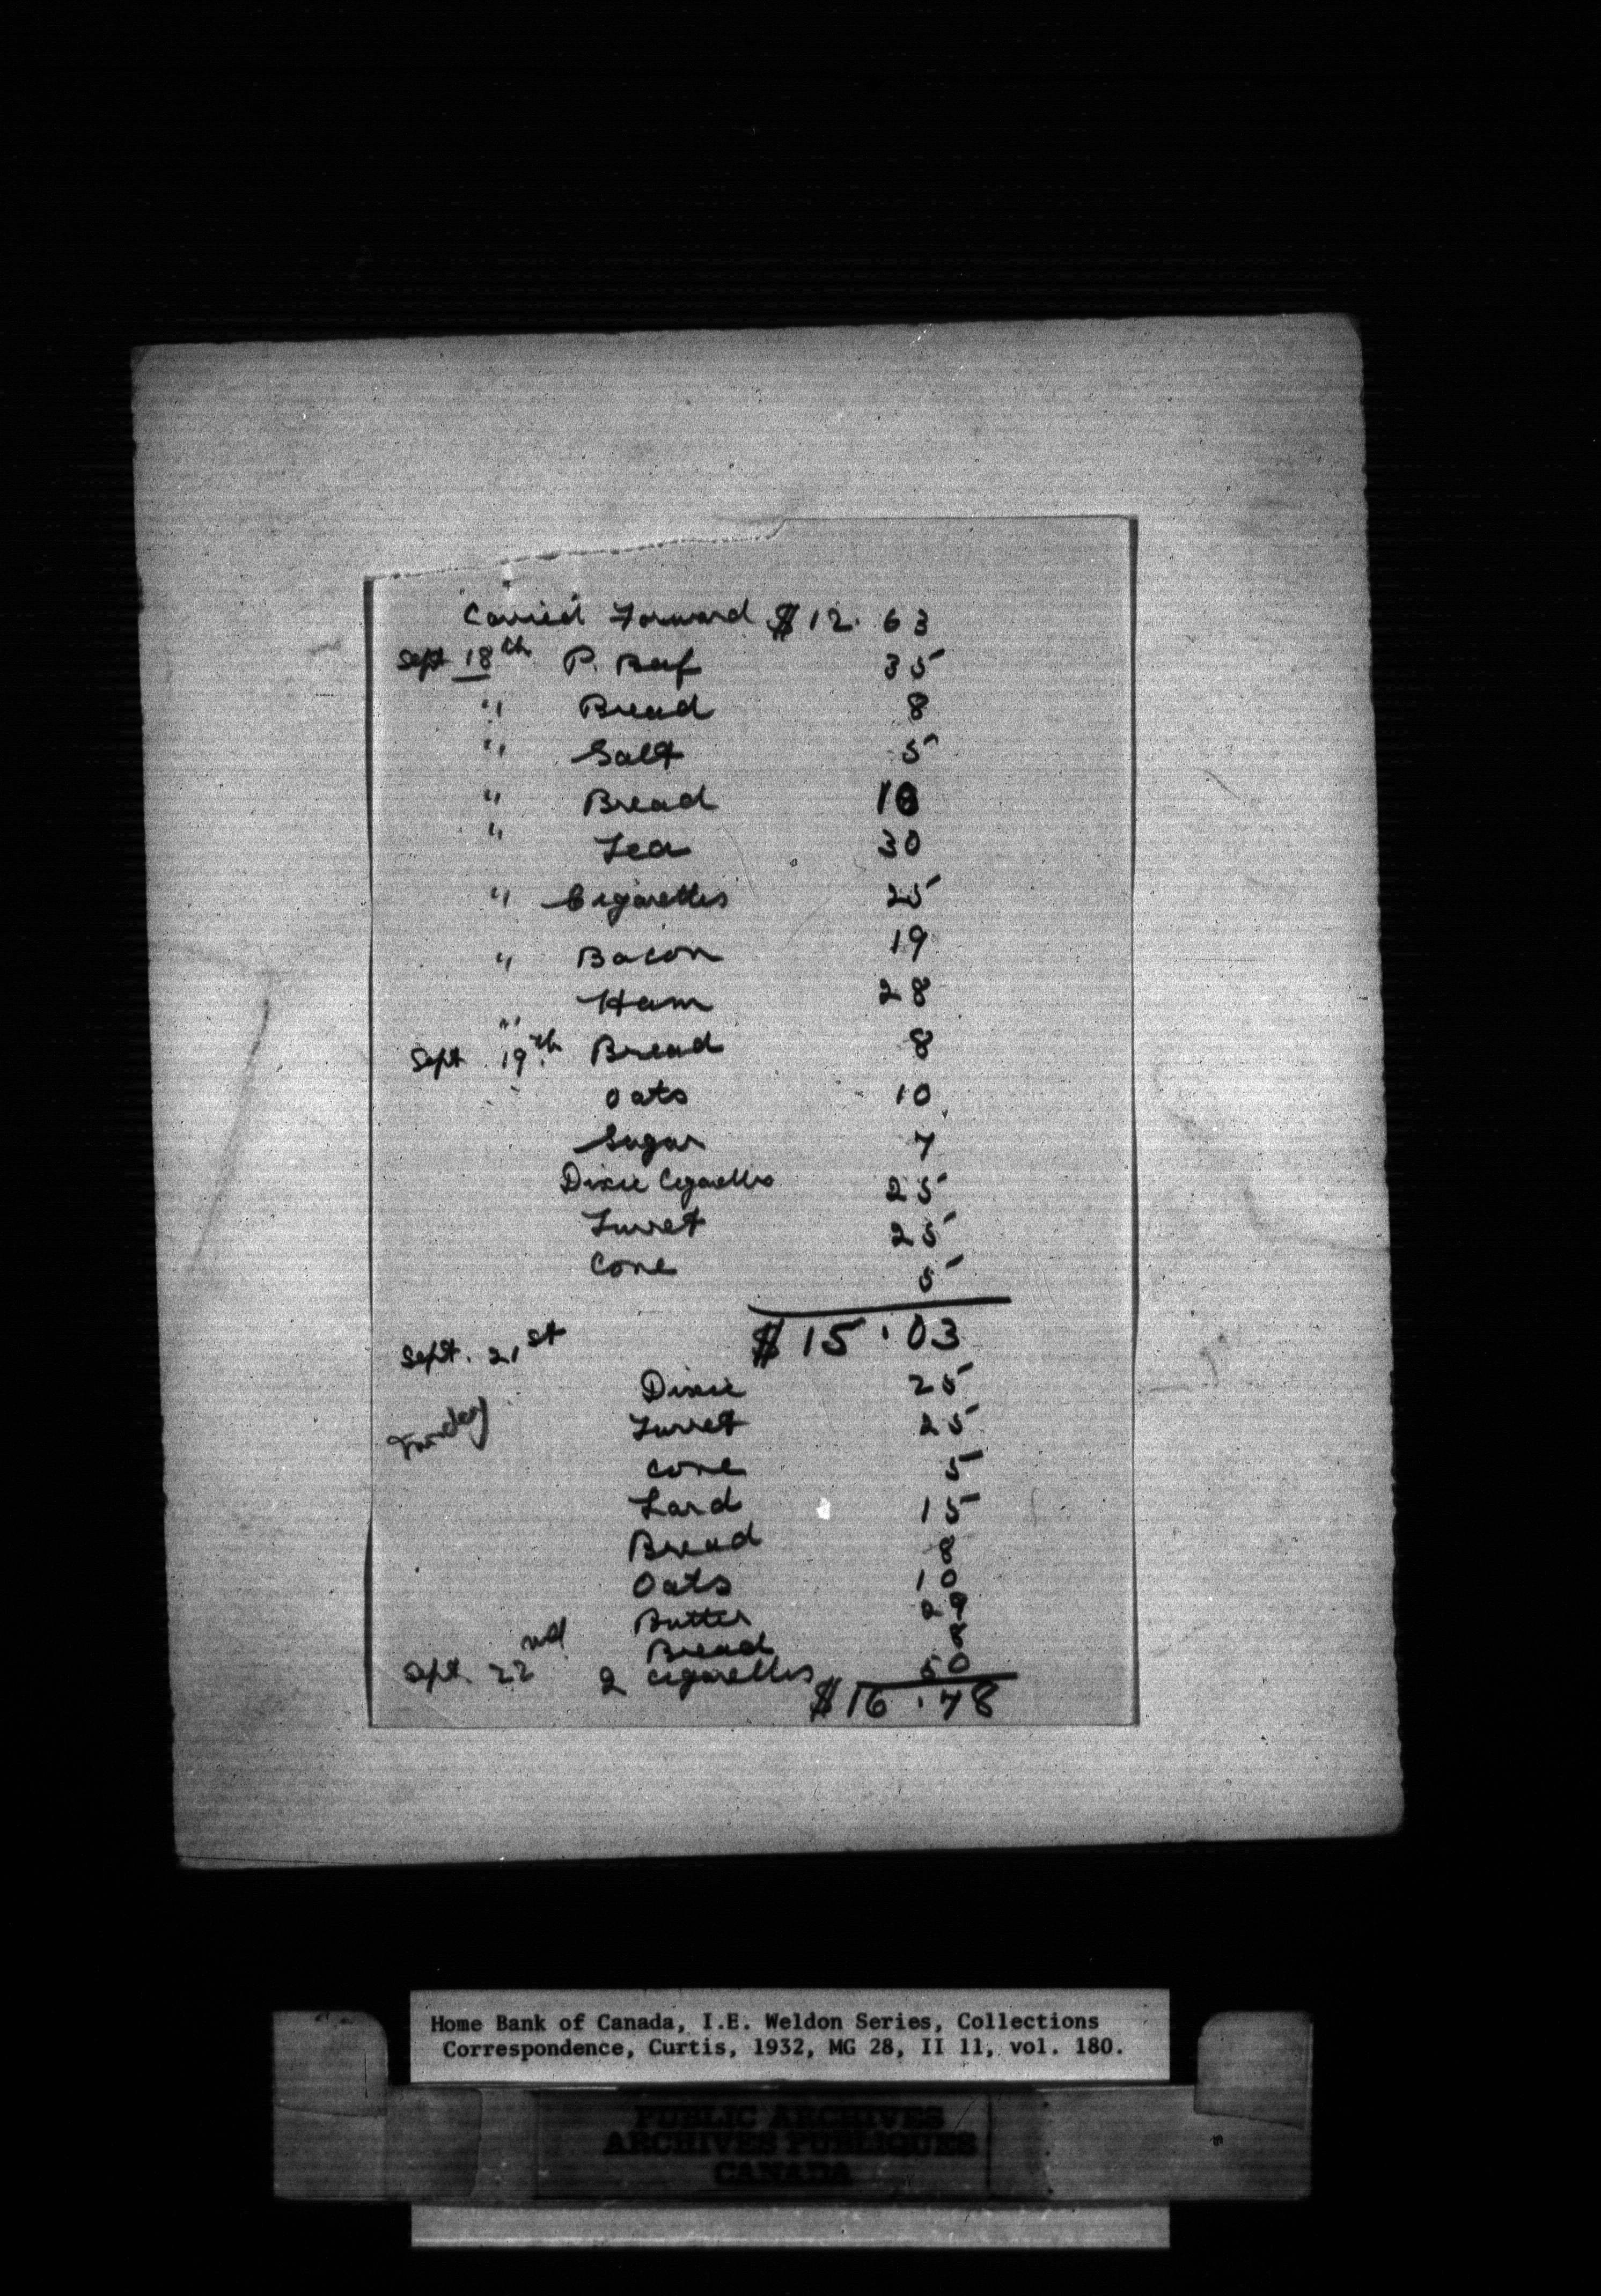 Carried Forward $12.63
Sept 18th P. Beef 35
" Bread 8
" Salt 5
" Bread 10
" Tea 30
" Cigarettes 25
" Bacon 19
" Ham 28
Sept 19th Bread 8
Oats 10
Sugar 7
Dixie Cigarettes 25
Turret 25
Cone 5
$15.03
Sept. 21st
Dixie 25
Turret 25
Cone 5
Lard 15
Bread 8
Oats 10
Butter 29
Bread 8
Sept. 22nd 2 cigarettes 50
$16.78
Home Bank of Canada, I.E. Weldon Series, Collections
Correspondence, Curtis, 1932, MG 28, II 11, vol. 180.
PUBLIC ARCHIVES
ARCHIVES PUBLIQUES
CANADA